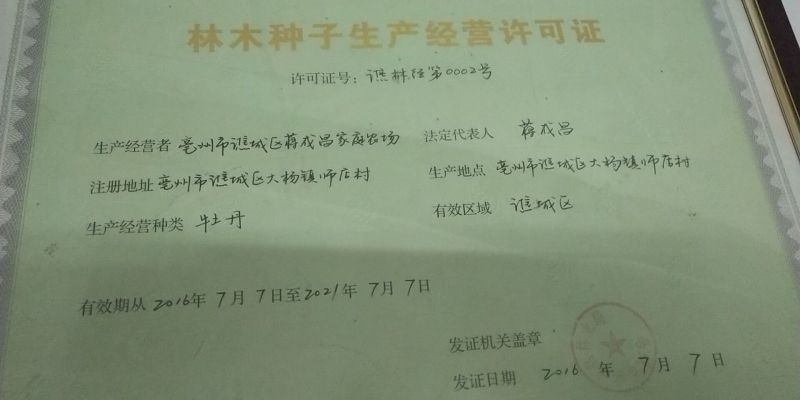 林木种子生产经营许可证
许可证号：谯林经第0002号
生产经营者 亳州市谯城区蒋成昌家庭农场 法定代表人 蒋成昌
注册地址 亳州市谯城区大杨镇师店村 生产地点 亳州市谯城区大杨镇师店村
生产经营种类 牡丹 有效区域 谯城区
有效期从 2016年 7月 7日至2021年 7月 7日
发证机关盖章
发证日期 2016 年 7 月 7 日